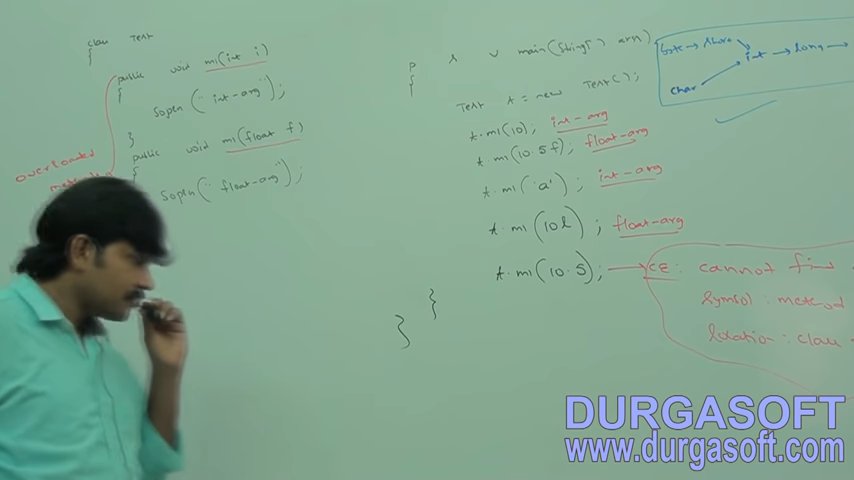 class Test
{
public void m1(int i)
{
Sopln("int-arg");
}
public void m1(float f)
{
Sopln("float-arg");
overloaded
p s v main(String[] args)
{
Test t = new Test();
t.m1(10); int-arg
t.m1(10.5f); float-arg
t.m1('a'); int-arg
t.m1(10l); float-arg
t.m1(10.5); → CE: cannot find
symbol: method
location: class
}
}
byte → short
int → long →
char
DURGASOFT
www.durgasoft.com